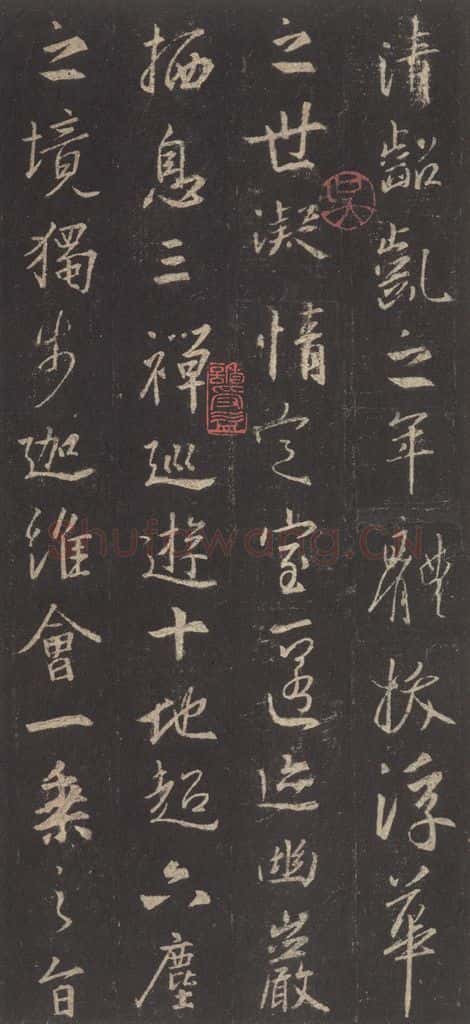 清齠齓之年體拔浮華
之世凝情定室匿迹幽巖
栖息三禪巡遊十地超六塵
之境獨步迦維會一乘之旨
Shufawang.CN